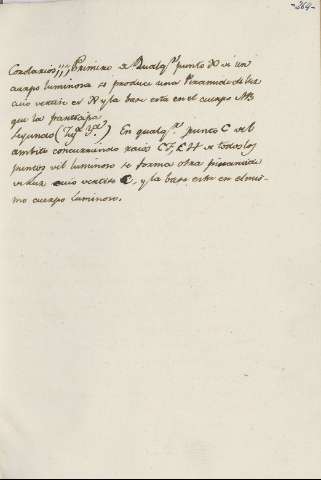 -269-
Corolarios;;; Primero de Qualq.r punto X de un
cuerpo luminoso se produce una Piramide de luz
cuio vertise es X y la base esta en el cuerpo AB
que la
Segundo (Fig.a 3.a) En qualq.r punto C del
ambito concurriendo raios CF, CH de todos los
puntos del luminoso se forma otra piramide
cuio vertise C, y la base esta en el mis-
mo cuerpo luminoso.